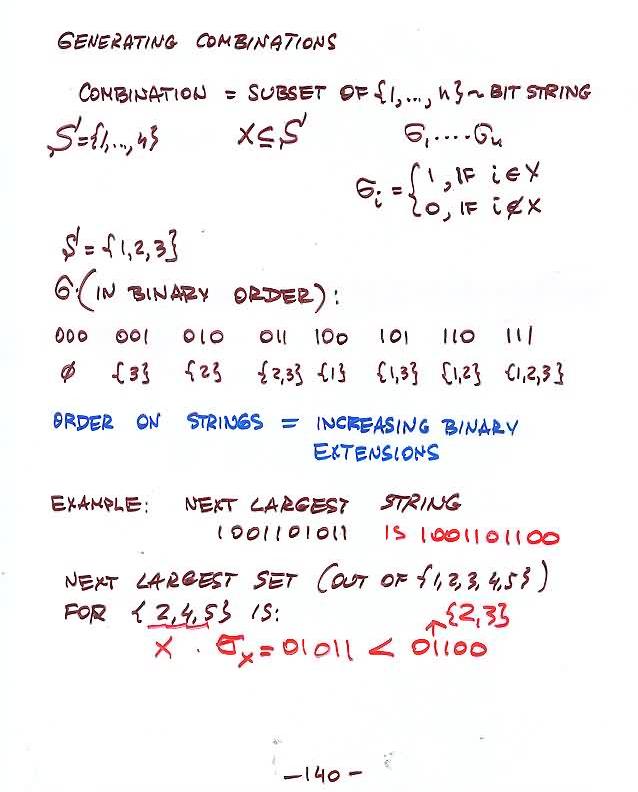 GENERATING COMBINATIONS
COMBINATION = SUBSET OF {1,...,n} ~ BIT STRING
S = {1,...,n} X ⊆ S σ₁....σₙ
σᵢ = { 1, IF i ∈ X
0, IF i ∉ X
S = {1,2,3}
σ (IN BINARY ORDER):
000 001 010 011 100 101 110 111
∅ {3} {2} {2,3} {1} {1,3} {1,2} {1,2,3}
ORDER ON STRINGS = INCREASING BINARY
EXTENSIONS
EXAMPLE: NEXT LARGEST STRING
1001101011 IS 1001101100
NEXT LARGEST SET (OUT OF {1,2,3,4,5})
FOR {2,4,5} IS: {2,3}
X . σₓ = 01011 < 01100
-140-